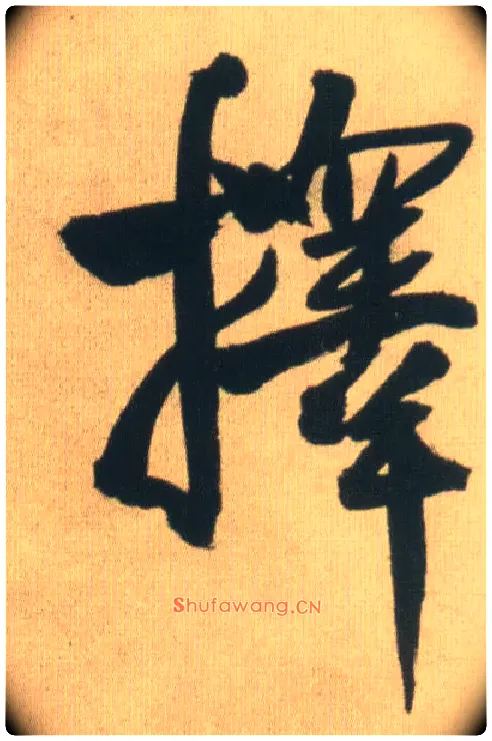 擇
Shufawang.CN